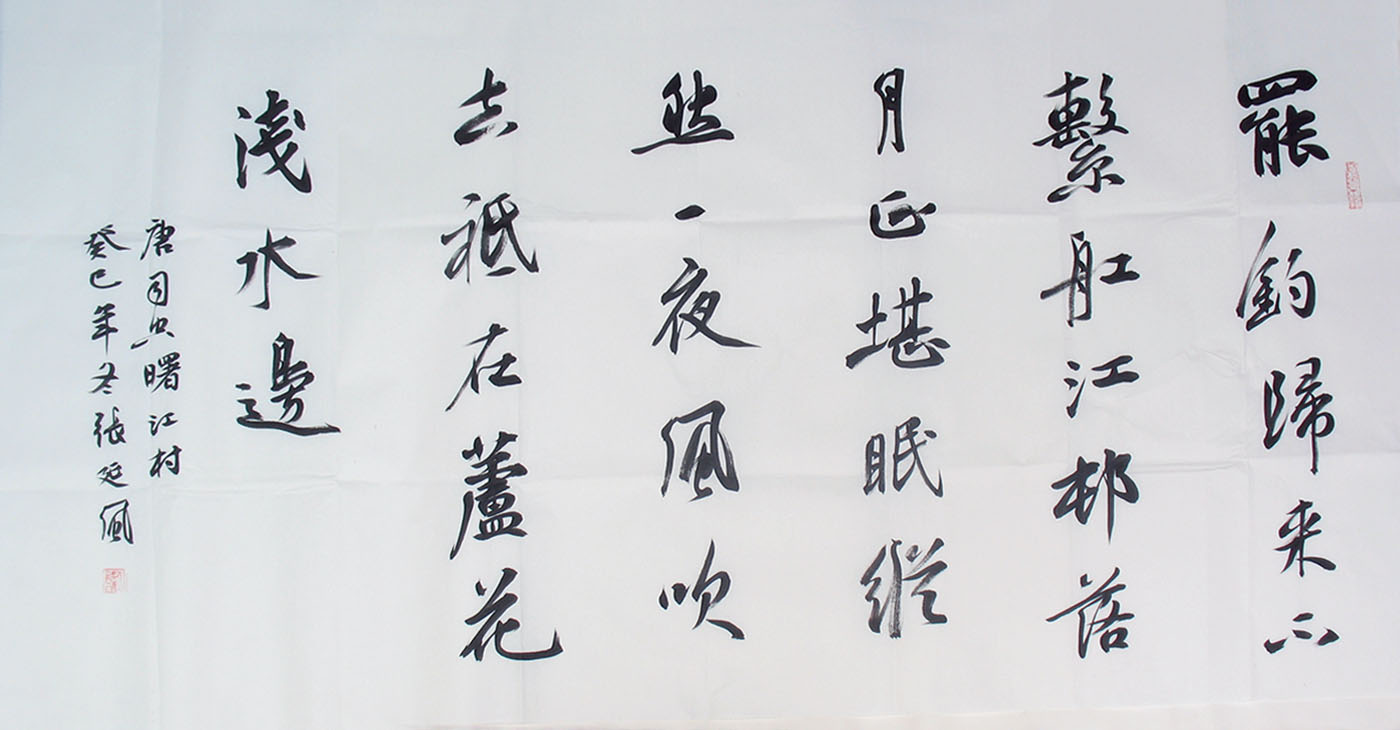 罷釣歸来不
繫舡江邨落
月正堪眠縱
然一夜風吹
去祗在蘆花
淺水邊
唐司空曙江村
癸巳年冬張延風